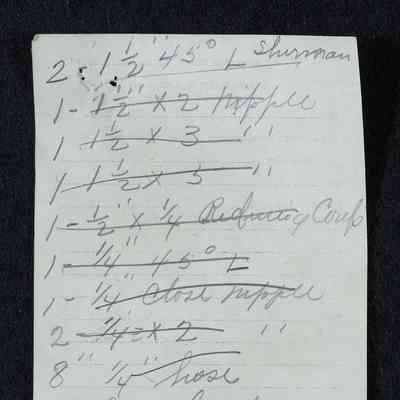 2 - 1 1/2" 45° L Sherman
1 - 1 1/2" x 2 Nipple
1 1 1/2 x 3 "
1 1 1/2 x 5 "
1 - 1/2" x 1/4 Reducing Coup
1 - 1/4" 45° L
1 - 1/4" Close Nipple
2 - 1/4" x 2 "
8" 1/4" hose